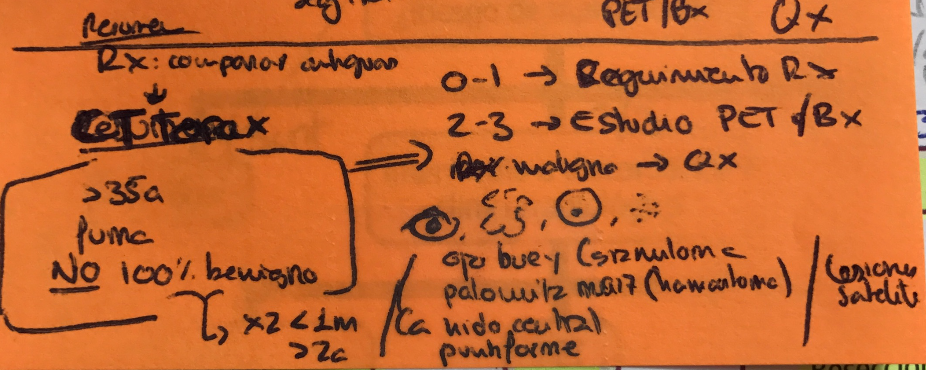 PET/Bx Qx
Resumen
Rx: comparar antiguas
CT tórax
>35a
fuma
NO 100% benigno
x2 <1m
>2a
0-1 → Seguimiento Rx
2-3 → Estudio PET y/Bx
maligno → Qx
ojo buey (granuloma
palomitz maiz (hamartoma)
Ca nido central
puntiforme
Lesiones
satelite